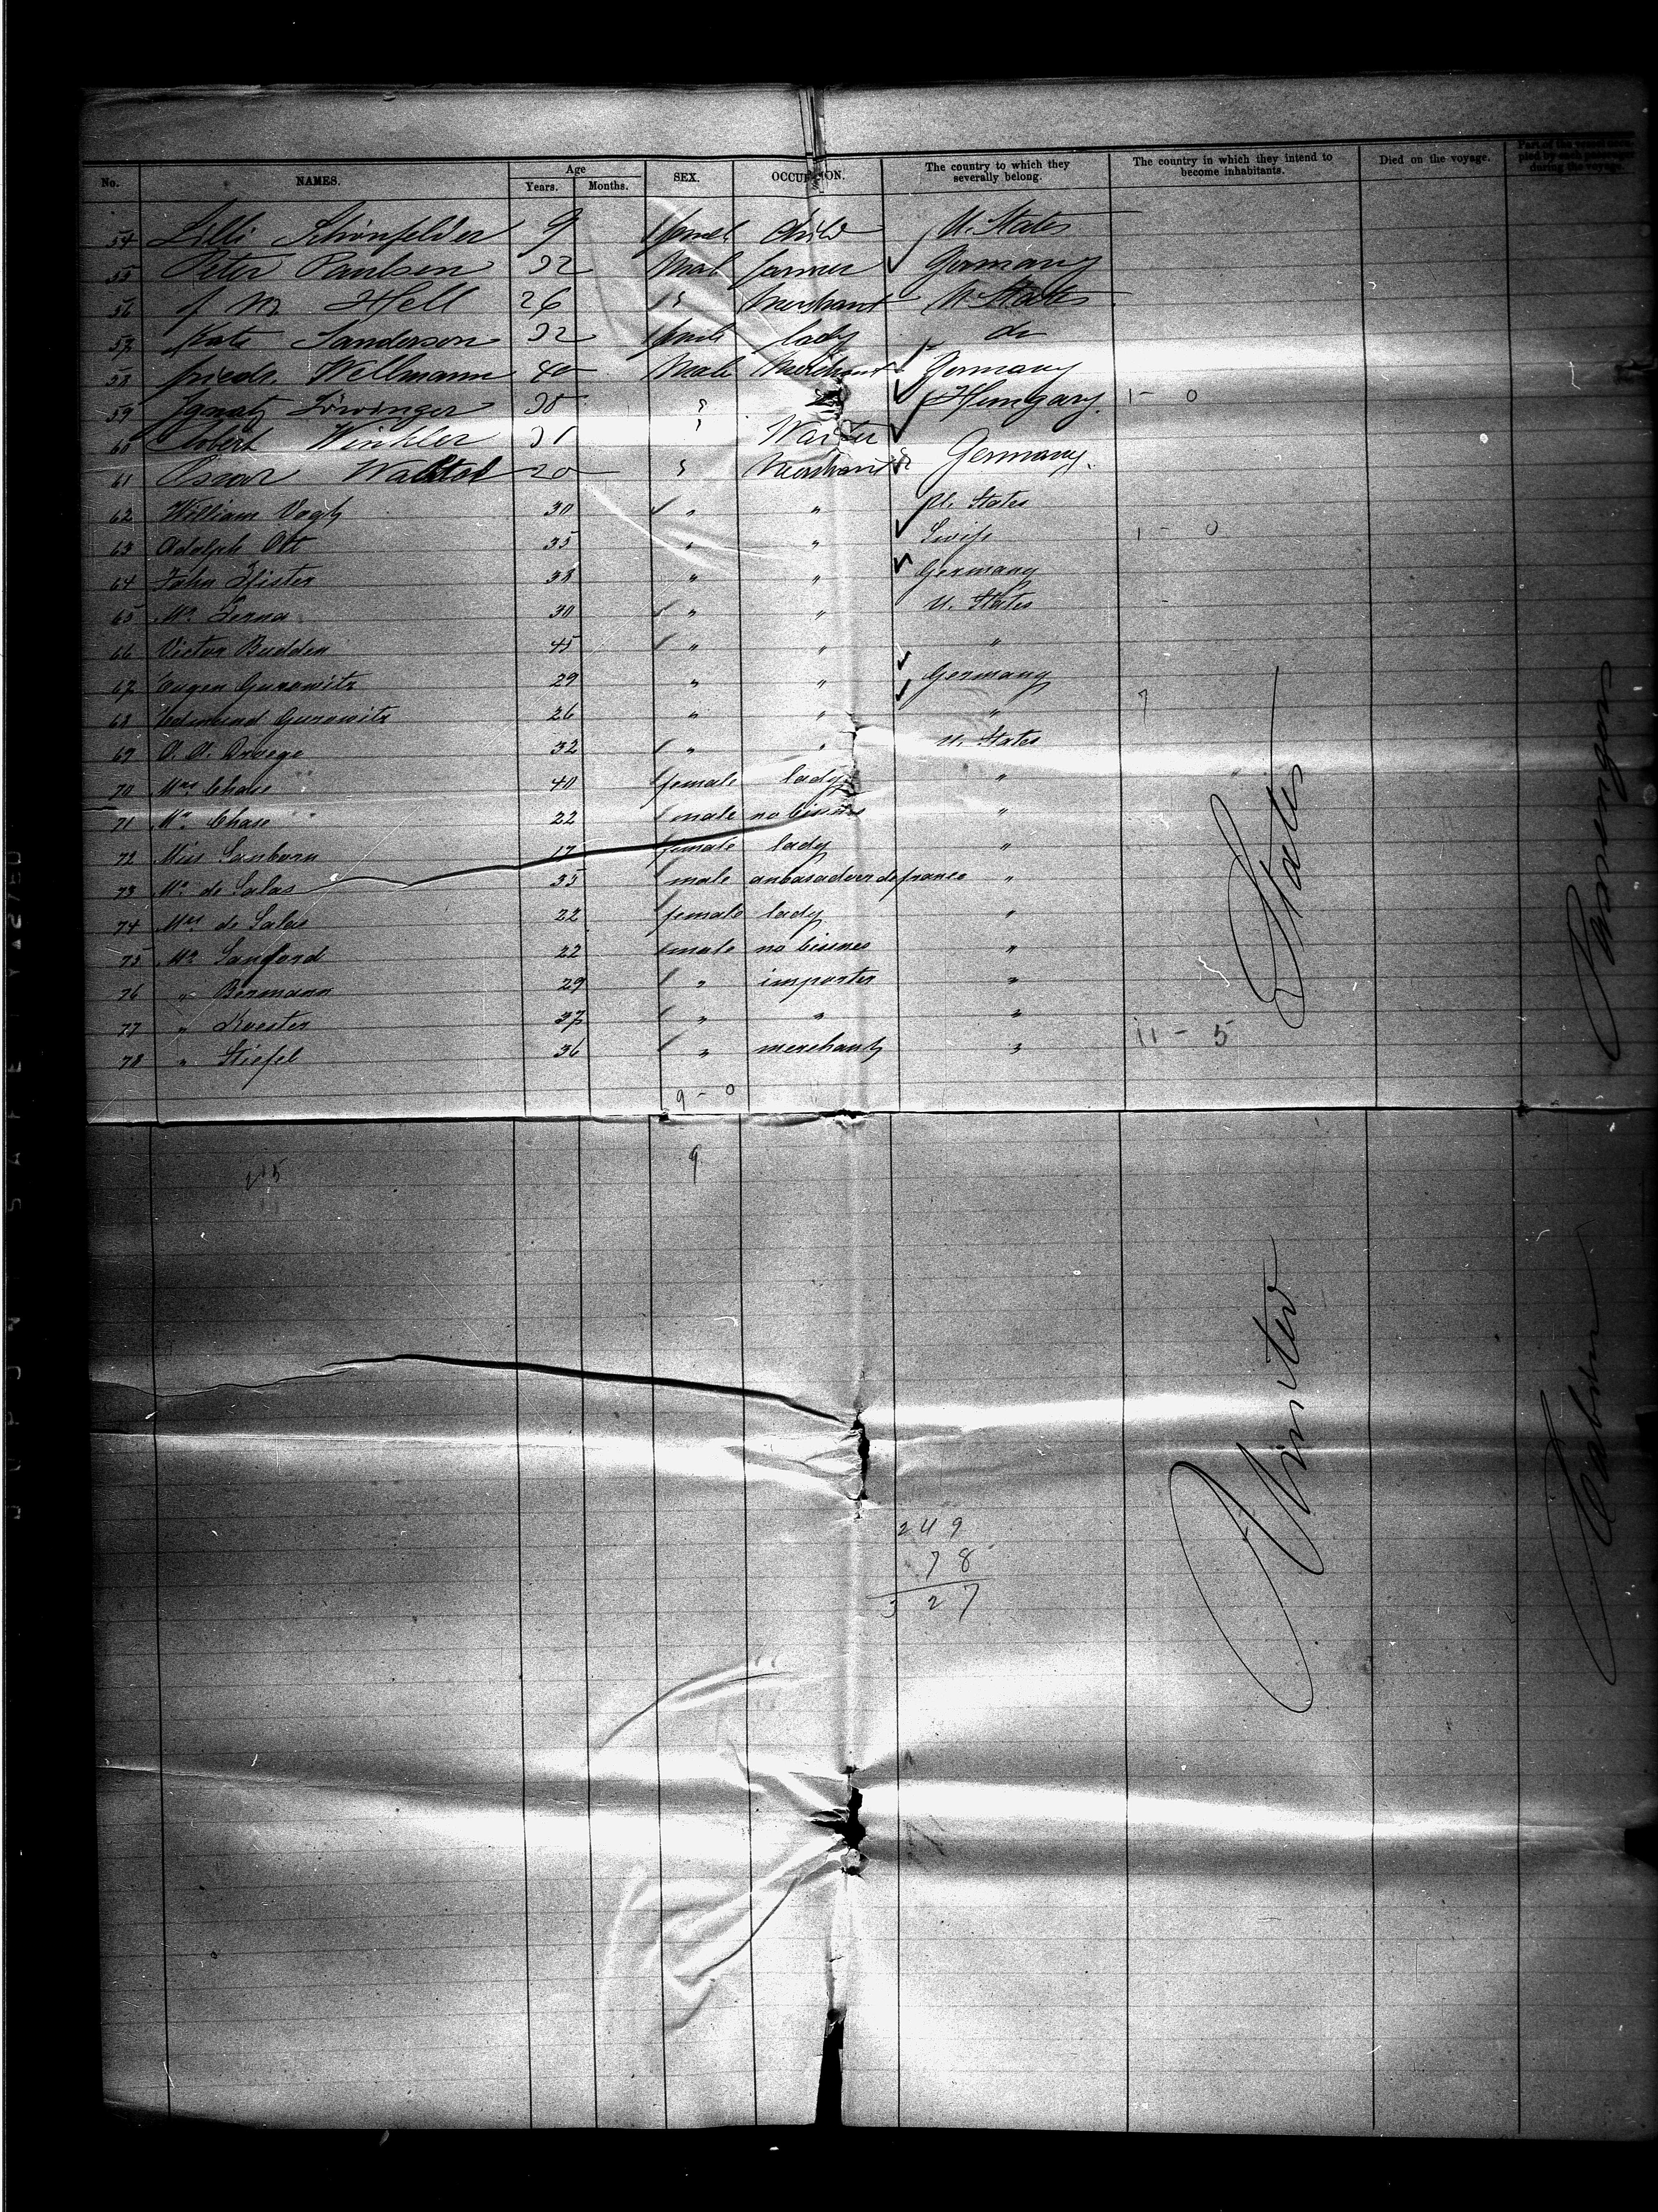 No. NAMES. Age Years. Months. SEX. OCCUPATION. The country to which they severally belong. The country in which they intend to become inhabitants. Died on the voyage. Part of the vessel occupied by each passenger during the voyage.
54 Lilli Schönfelder 9 femel Child U. States
55 Peter Paulsen 32 Mal farmer Germany
56 J M Hell 26 " Merchant U. States
57 Kate Sanderson 32 femle lady do
58 friedr. Wellmann 40 Male Merchant Germany
59 Ignatz Löwinger 30 " Hungary. 1 - 0
60 Robert Winkler 31 " Waiter
61 Oscar 20 " Merchant Germany.
62 William Voght 30 " " U. States
63 Adolph Ott 35 " " Swiss 1 - 0
64 John Pfister 38 " " Germany
65 Mr. Serna 30 " " U. States
66 Victor Budden 45 " " "
67 Eugen Gurowitz 29 " " Germany
68 Edmund Gurowitz 26 " " " 7
69 A. A. 32 " " U. States
70 Mrs Chase 40 female lady "
71 Mr. Chase 22 male no bissnes "
72 Miss Sanborn 17 female lady "
73 Mr. de Salas 35 male anbasadeur de france "
74 Mrs de Salas 22 female lady "
75 Mr Sanford 22 male no bissnes "
76 " Bermann 29 " importer "
77 " Koester 37 " " "
78 " Stiefel 36 " merchant "
11 - 5
9 - 0
9
249
78
327
United States
Cabin Passengers